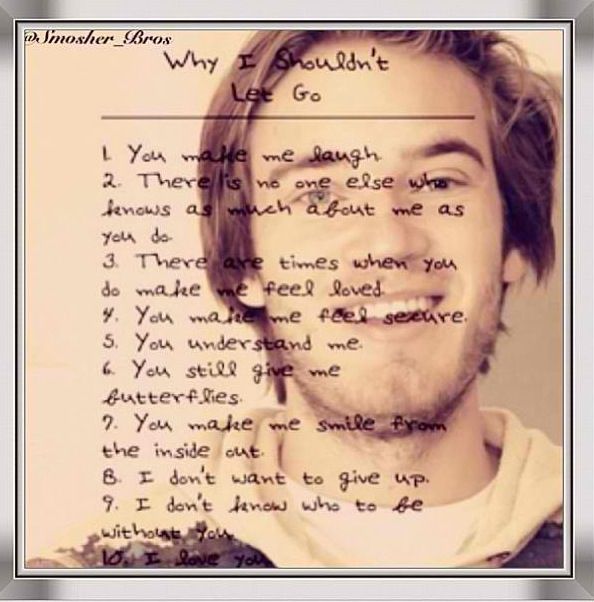 @Smosher_Bros
Why I Shouldn't
Let Go
1. You make me laugh
2. There is no one else who
knows as much about me as
you do.
3. There are times when you
do make me feel loved
4. You make me feel secure.
5. You understand me.
6. You still give me
butterflies.
7. You make me smile from
the inside out.
8. I don't want to give up.
9. I don't know who to be
without you.
10. I love you